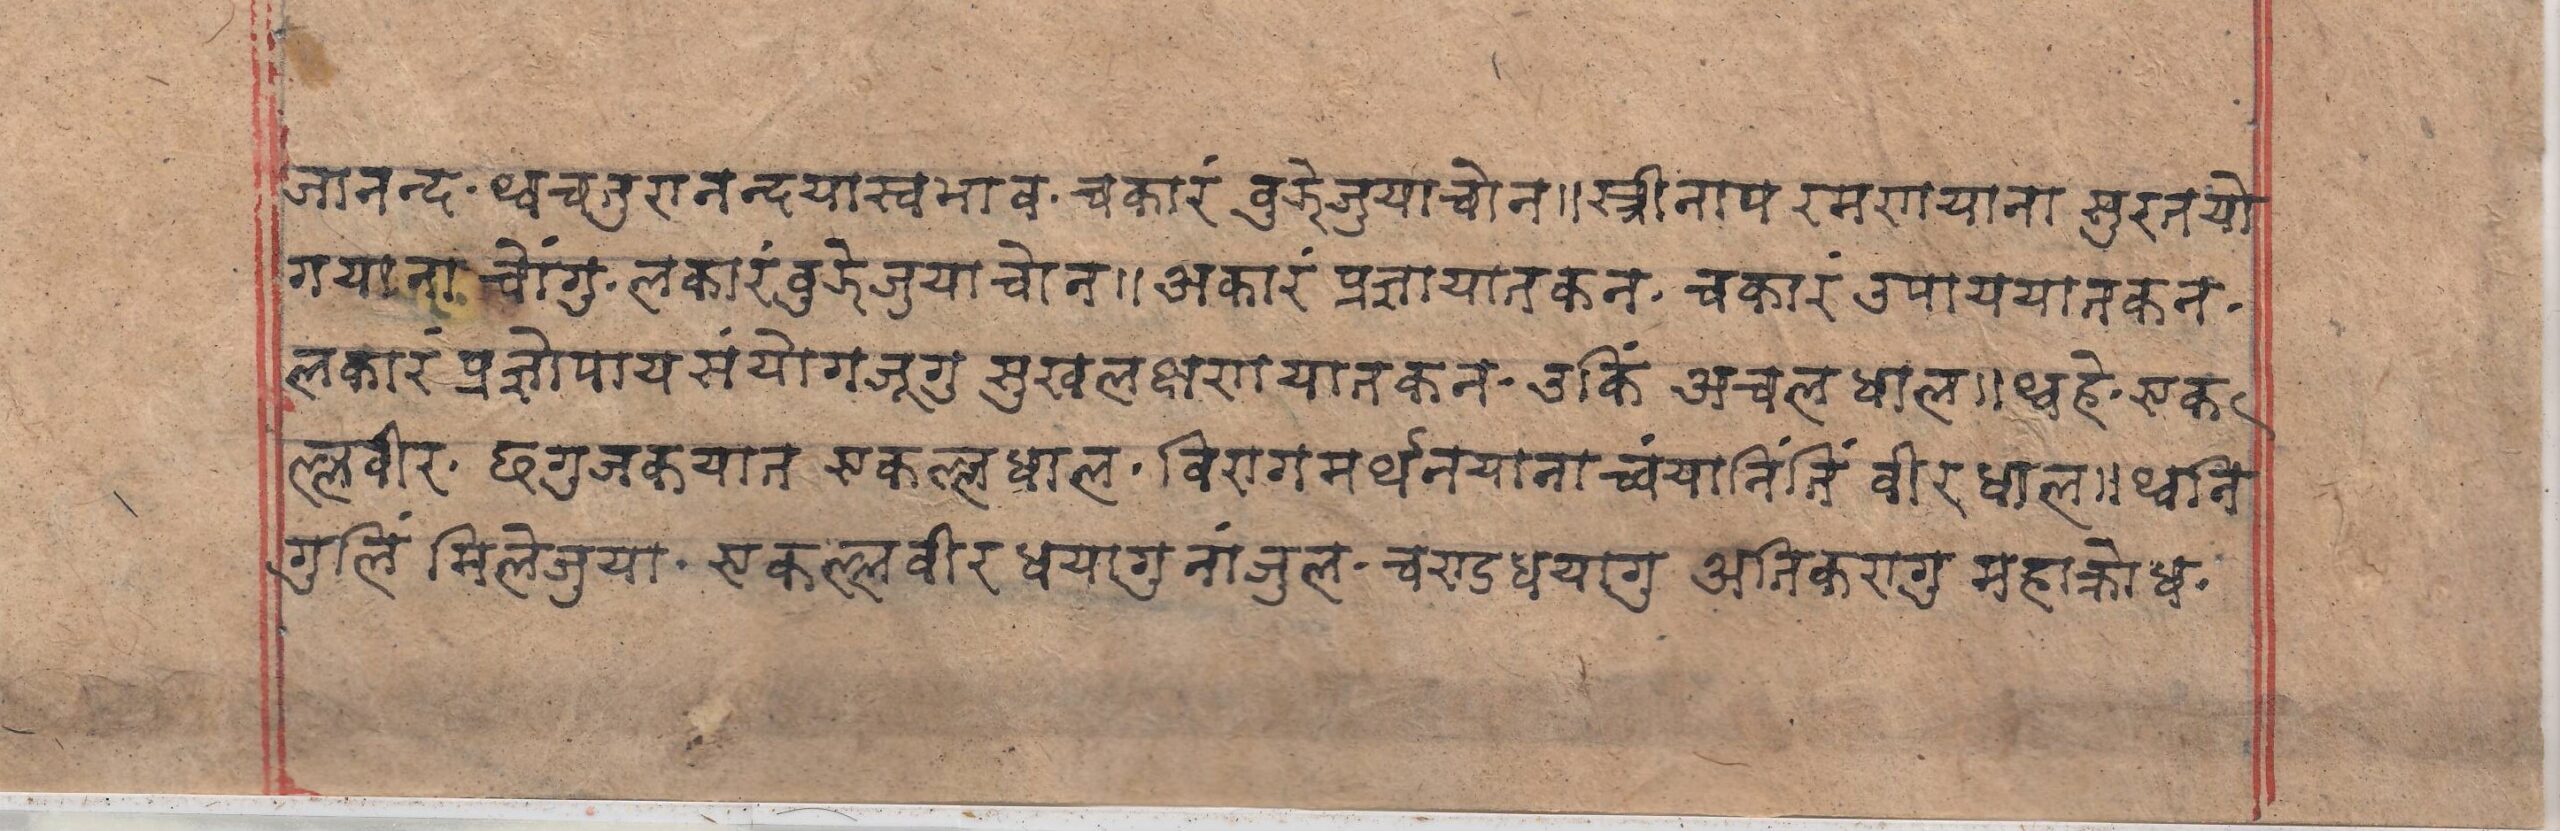 जानन्द· थ्वचतुरानन्दयास्वभाव· चकारं वुझेजुयाचोन॥स्त्रीनाप रमणयाना सुरतयो
गयाना चोंगु· लकारंवुझेजुयाचोन॥अकारं प्रज्ञायातकन· चकारं उपाययातकन·
लकारं प्रज्ञोपायसंयोगजूगु सुखलक्षणयातकन· उकिं अचलधाल॥थ्वहे· एक
ल्लवीर· छगुजकयात एकल्लधाल· विरागमर्थनयानाच्वंयानिंतिं वीरधाल॥थ्वनि
गुलिं मिलेजुया· एकल्लवीरधयागुनांजुल· चण्डधयागु अतिकरागु महाक्रोध·